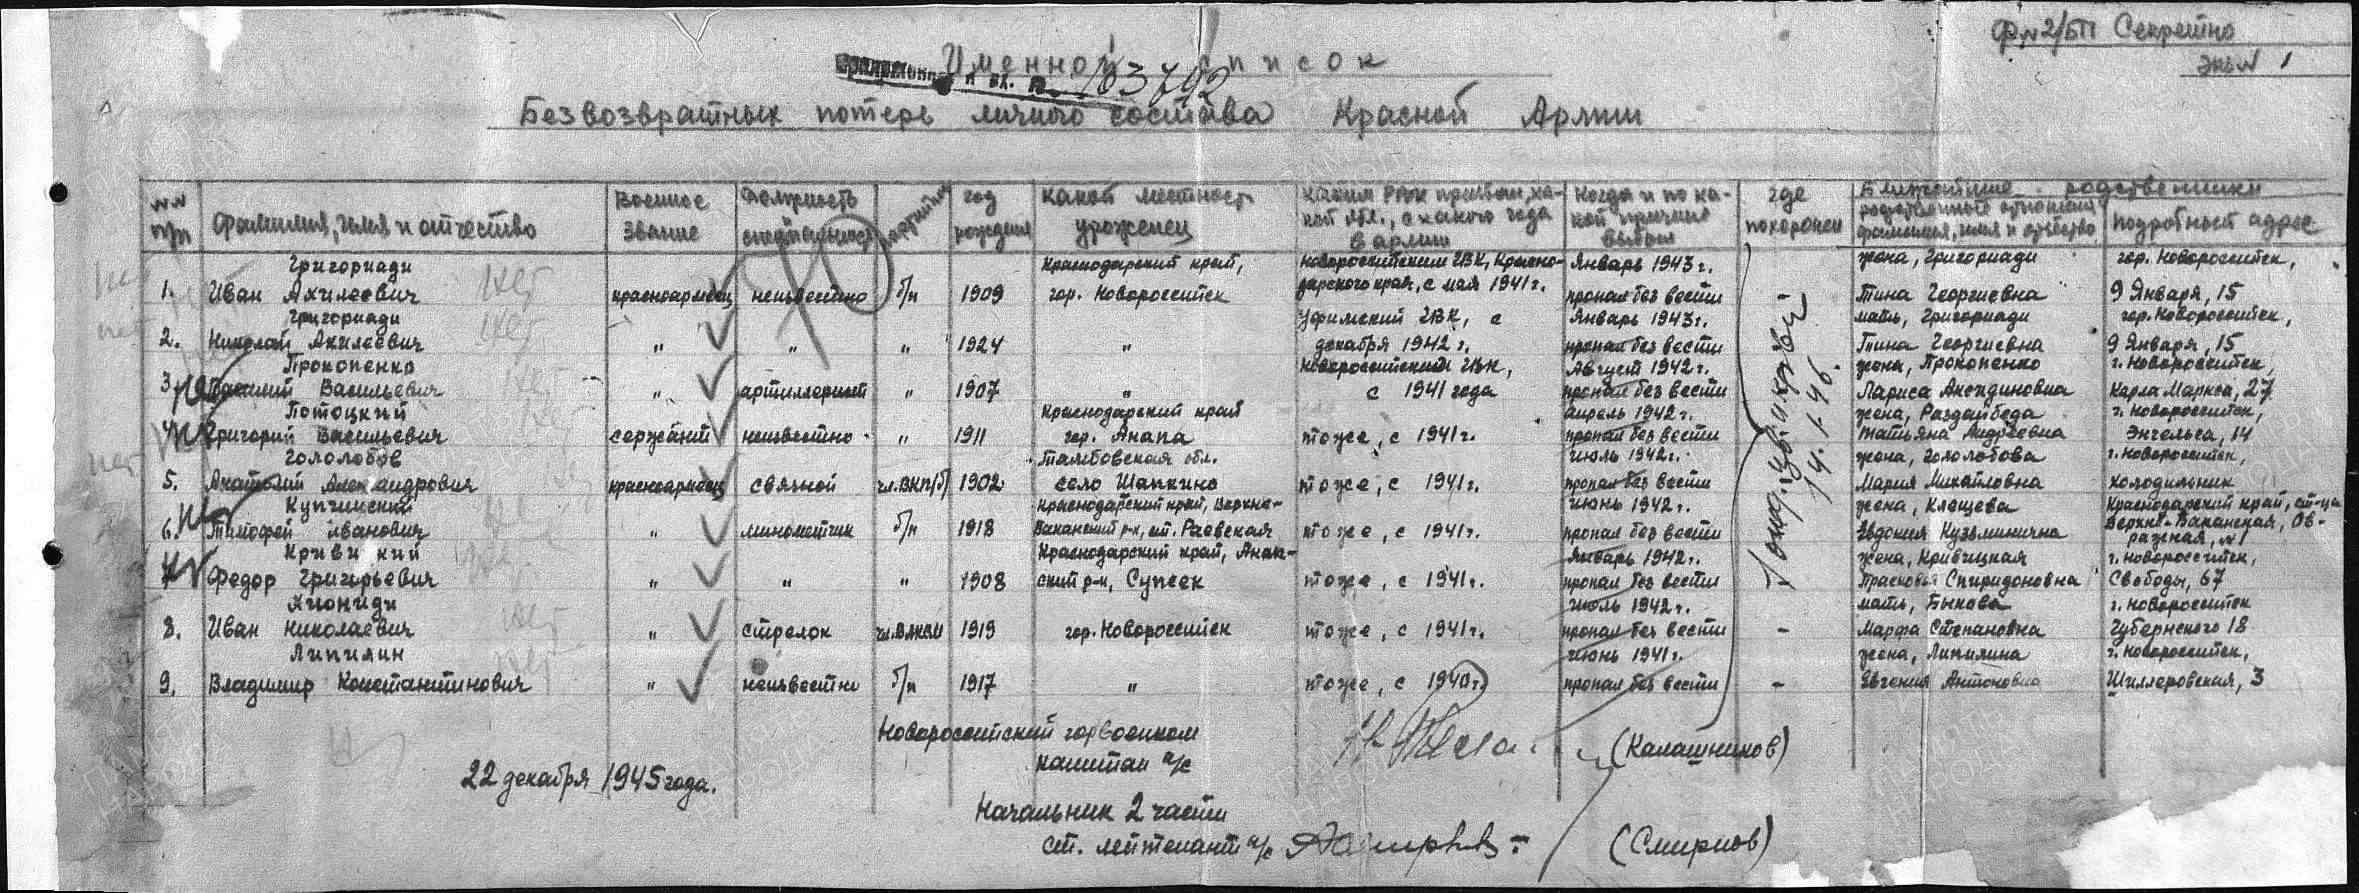 Ф,N2/БП Секретно
экз N 1
Именной список
вх. 103792
Безвозвратных потерь личного состава Красной Армии
N.N п/п Фамилия, имя и отчество Военное звание Должность специальность партийн год рождения какой местност уроженец Каким РВК призван, какой обл., с какого года в армии Когда и по какой причине выбыл где похоронен Ближайшие родственники
родственные отношения фамилия, имя и отчество подробный адрес
Григориади Краснодарский край, новороссийским ГВК, Красно- Январь 1943 г. жена, Григориади гор. Новороссийск,
1. Иван Ахилесвич нет красноармеец неизвестно б/п 1909 гор. Новороссийск дарского края, с мая 1941 г. пропал без вести - Тина Георгиевна 9 Января, 15
Григориади нет Уфимский ГВК, с Январь 1943 г. мать, Григориади гор. Новороссийск,
2. Николай Ахилесвич нет " " " 1924 " декабря 1942 г. пропал без вести Тина Георгиевна 9 Января, 15
Прокопенко Новороссийский ГВК, Август 1942 г. жена, Прокопенко г. Новороссийск,
3. Васильевич " артиллерист " 1907 " с 1941 года пропал без вести Лариса Карла Маркса, 27
Потоцкий Краснодарский край апрель 1942 г. жена, Раздайбеда г. Новороссийск,
Григорий Васильевич сержант неизвестно " 1911 гор. Анапа тоже, с 1941 г. пропал без вести Татьяна Андреевна Энгельса, 14
Гололобов Тамбовская обл. июль 1942 г. жена, Гололобова г. Новороссийск,
5. Анатолий Александрович красноармеец связной чл.ВКП/б/ 1902 село Шапкино тоже, с 1941 г. пропал без вести Мария Михайловна Холодильник
Купчинский Краснодарский край, Верхне- июнь 1942 г. жена, Клещева Краснодарский край, ст-ца
6. Тимофей Иванович " минометчик б/п 1918 Баканский р-н, ст. Раевская тоже, с 1941 г. пропал без вести Евдокия Кузьминична Верхне-Баканская, Ов-
ражная, N1
Криви кий Краснодарский край, Анап- Январь 1942 г. жена, Кривицкая г. Новороссийск,
Федор Григорьевич " " " 1908 ский р-н, Супсех тоже, с 1941 г. пропал без вести Прасковья Спиридоновна Свободы, 67
Хиониди июль 1942 г. мать, Быкова г. Новороссийск
8. Иван Николаевич " стрелок чл.ВЛКСМ 1919 гор. Новороссийск тоже, с 1941 г. пропал без вести - Марфа Степановна Губернского 18
Липилин июнь 1941 г. жена, Липилина г. Новороссийск,
9. Владимир Константинович " неизвестно б/п 1917 " тоже, с 1940 г. пропал без вести - Евгения Антоновна Шиллеровская, 3
14.1.46.
Новороссийский горвоенком
капитан а/с (Калашников)
22 декабря 1945 года.
Начальник 2 части
ст. лейтенант а/с (Смирнов)